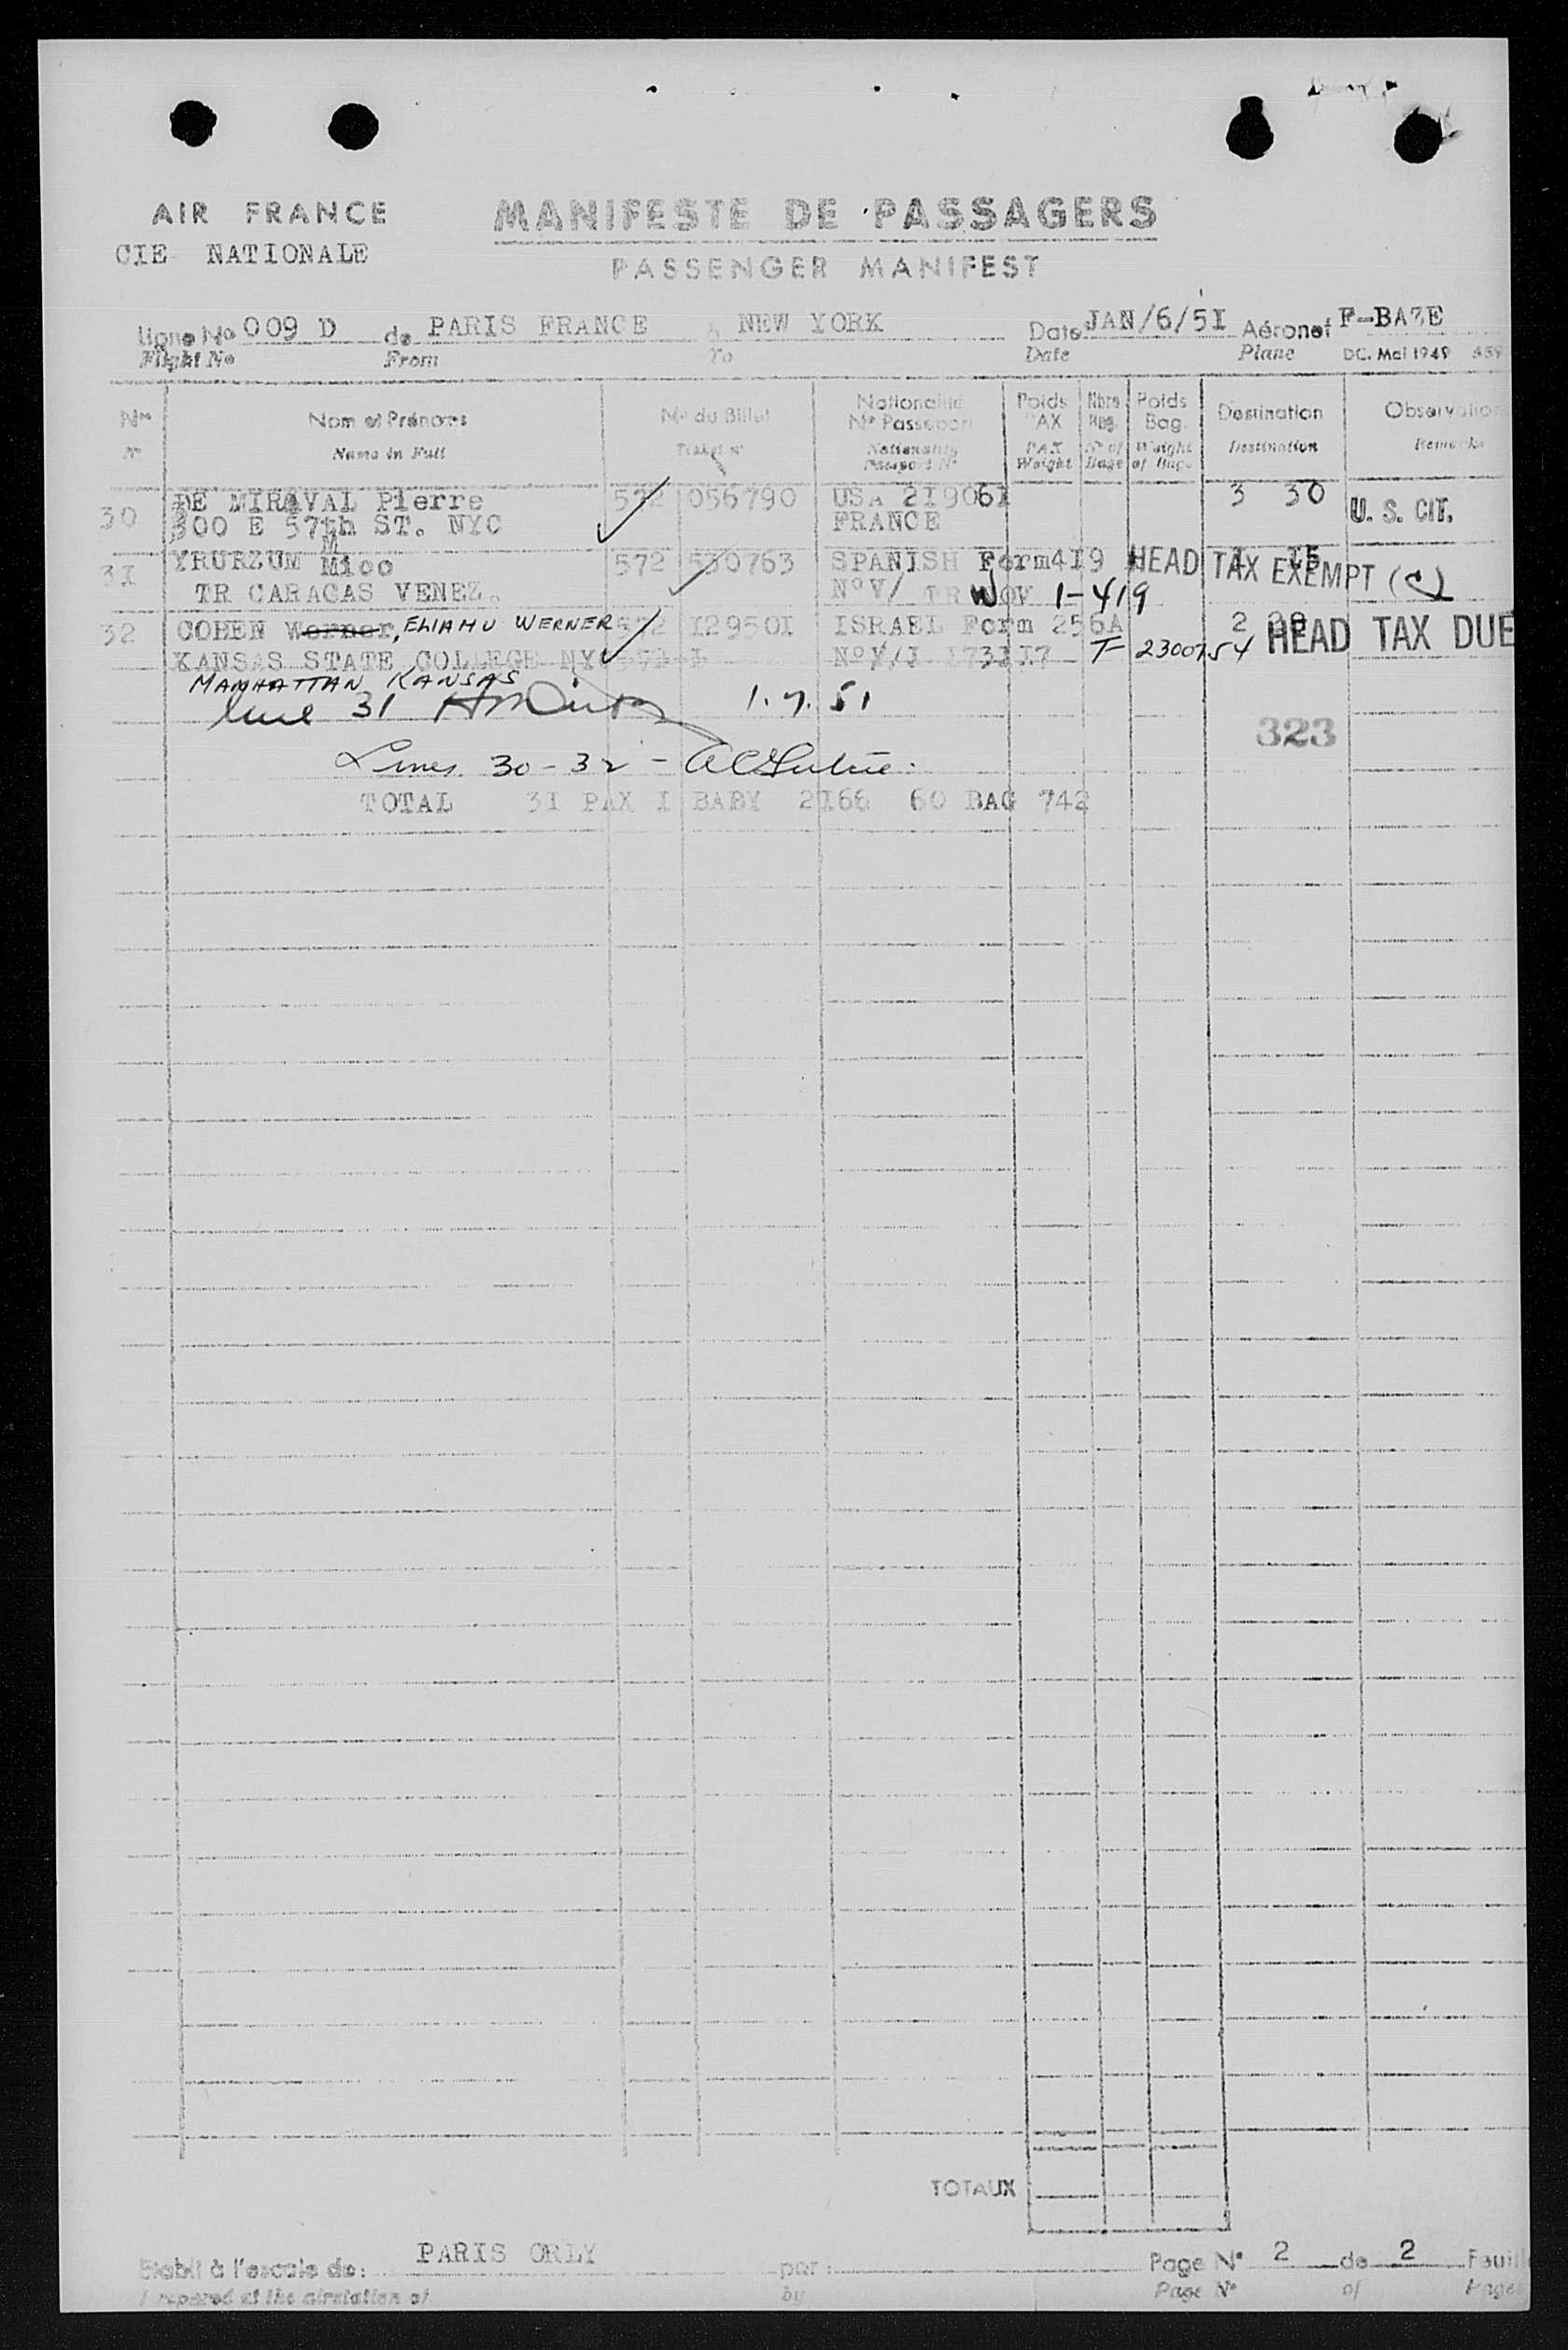 AIR FRANCE MANIFESTE DE PASSAGERS
CIE NATIONALE PASSENGER MANIFEST
Ligne No 009 D de PARIS FRANCE à NEW YORK Date JAN/6/51 Aéronef F-BAZE
Flight No From To Date Plane DC. Mai 1949 559
Nos Nom et Prénoms No du Billet Nationalité No Passeport Poids PAX Nbre Bag. Poids Bag. Destination Observation
No Name in Full Ticket no Nationality Passport No PAX Weight No of Bags Weight of Bags Destination Remarks
30 DE MIRAVAL Pierre 572 056790 USA 219061 3 30 U. S. CIT.
300 E 57th ST. NYC FRANCE
M
31 YRURZUM Mico 572 530763 SPANISH Form 419 HEAD TAX EXEMPT (C)
TR CARACAS VENEZ. No V/ TRWOV 1-419
32 COHEN Werner, ELIAHU WERNER 572 129501 ISRAEL Form 256A 2 HEAD TAX DUE
KANSAS STATE COLLEGE NY No V/I 173117 T-2300754
MANHATTAN KANSAS
line 31 1.7.51
323
Lines 30-32 -
TOTAL 31 PAX I BABY 2166 60 BAG 742
TOTAUX
Etabli à l'escale de: PARIS ORLY par: Page No 2 de 2 Feuill
Prepared at the airstation of by Page No of Pages